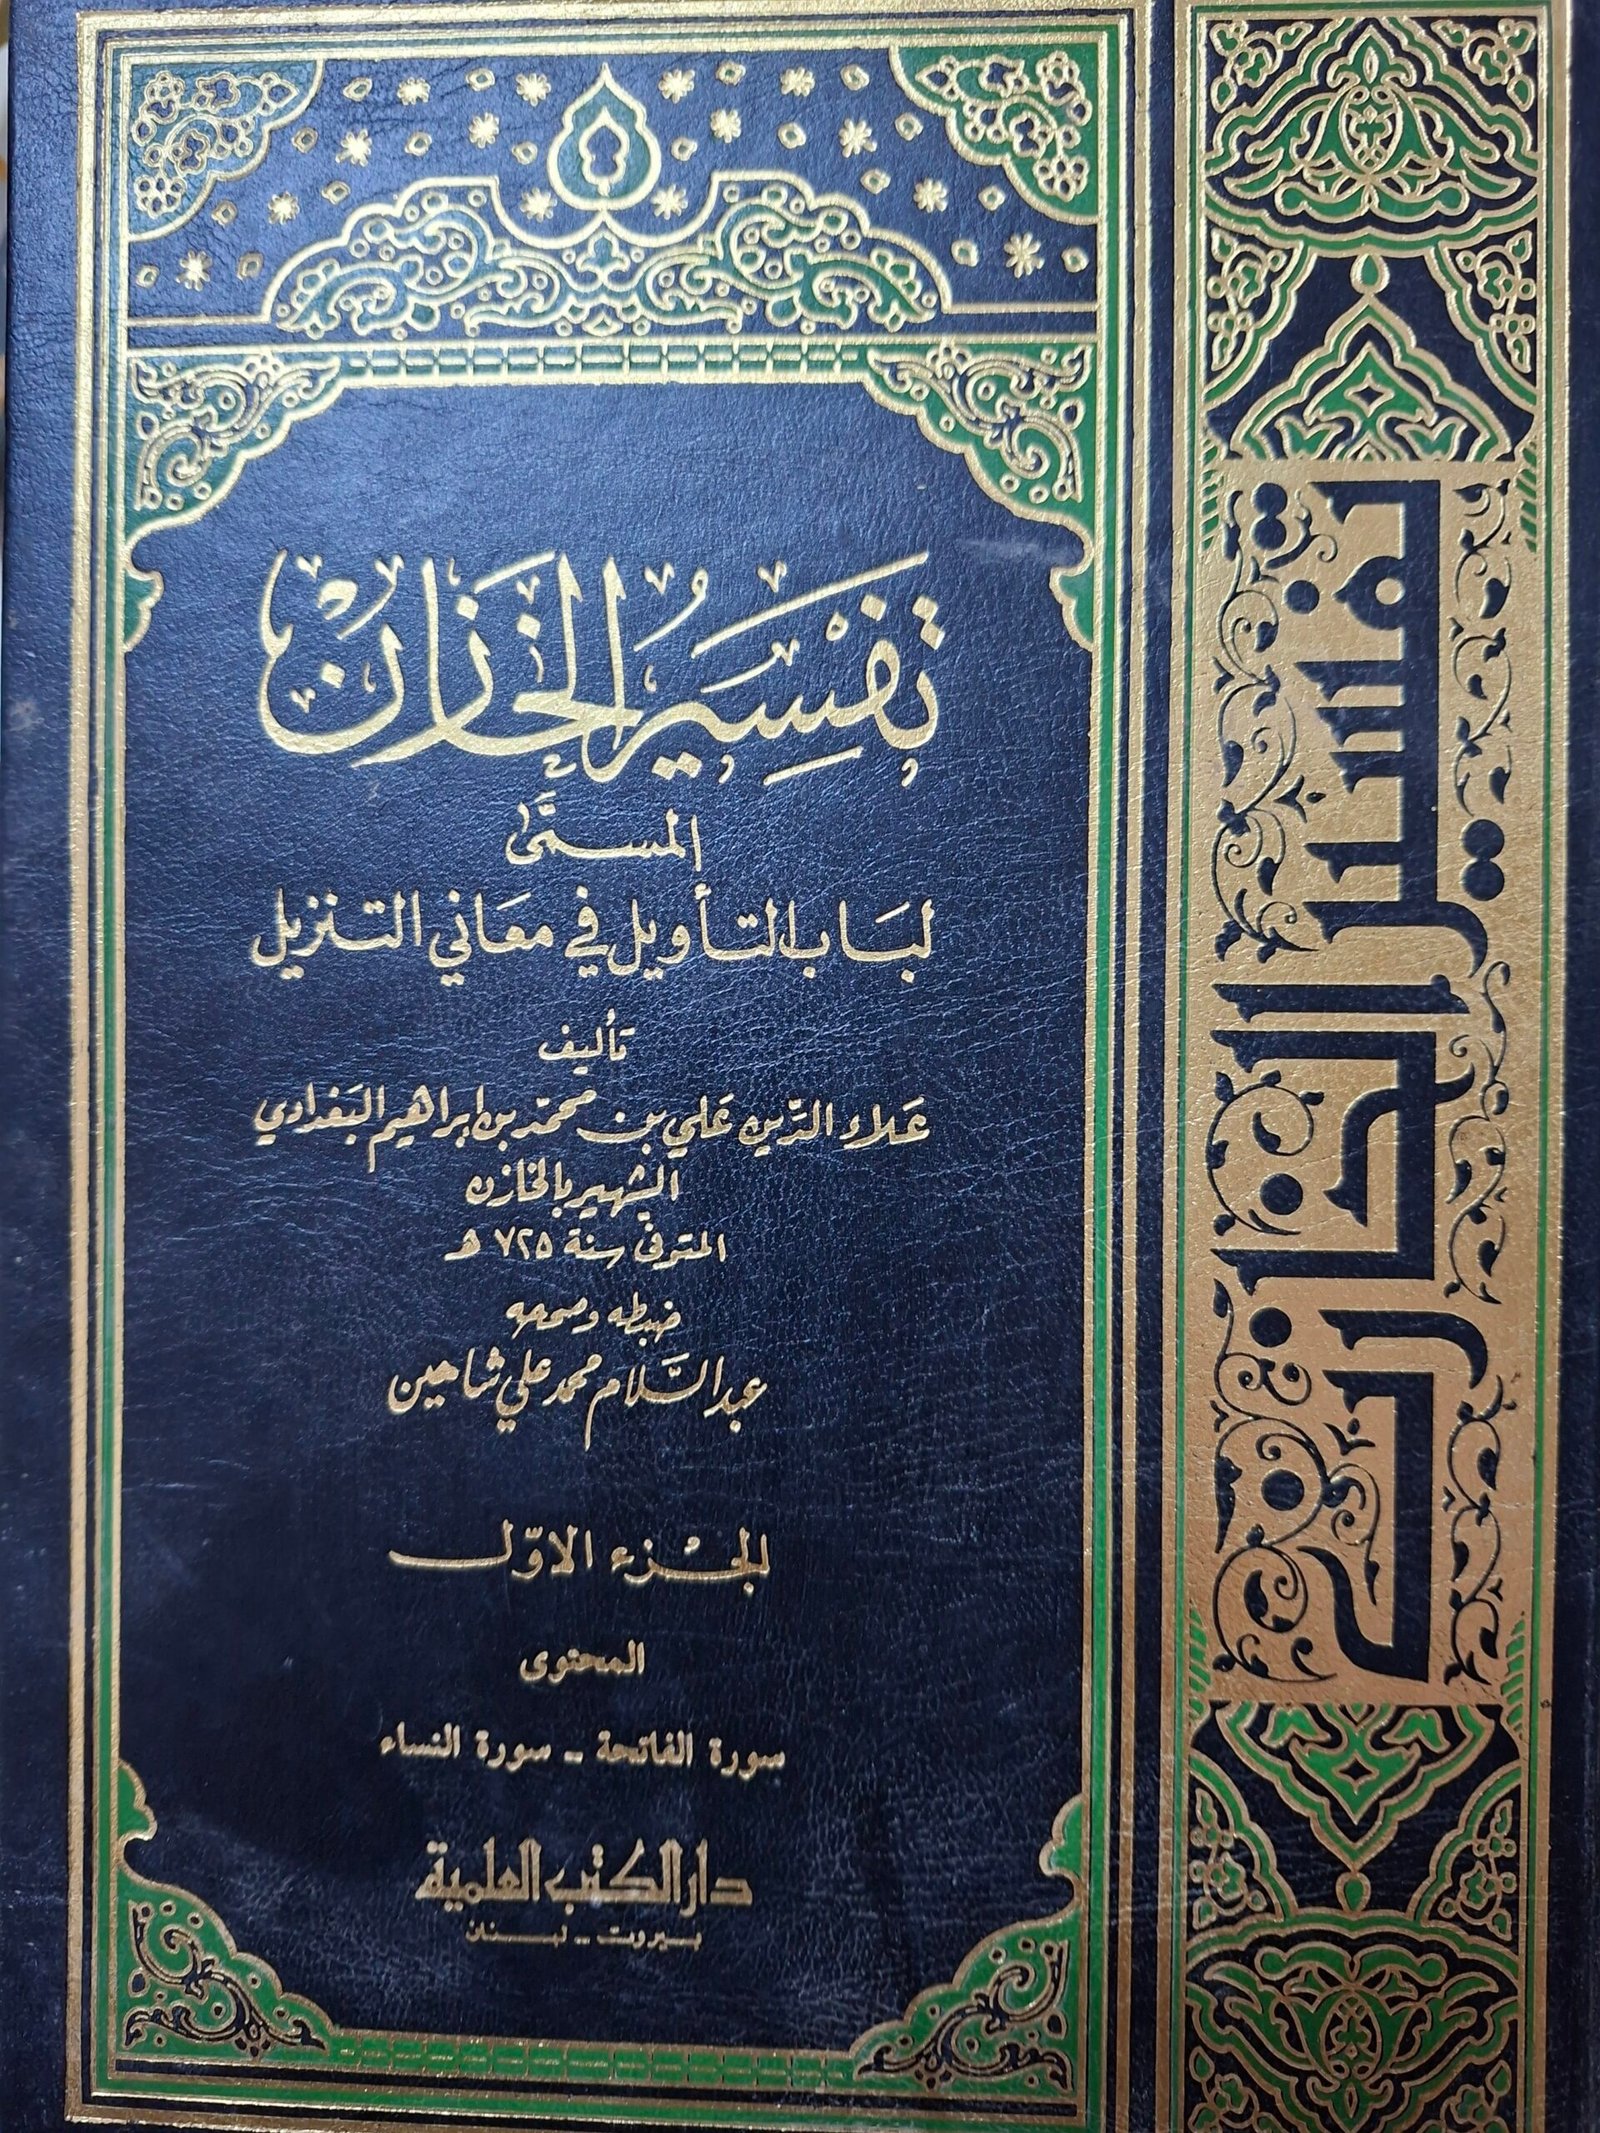 تَفْسِيرُ الخَازِنْ
المسمَّى
لبَاب التأويل في معَاني التنزيل
تأليف
عَلاء الدّين عَلي بن محمّد بن إبراهيم البَغدادي
الشهير بالخازن
المتوفى سنة ٧٢٥ هـ
ضبطه وصححه
عبد السَّلام محمد علي شاهين
الجُزء الأوّل
المحتوى
سورة الفاتحة - سورة النساء
دار الكتب العلمية
بيروت - لبنان
تفسير الخازن